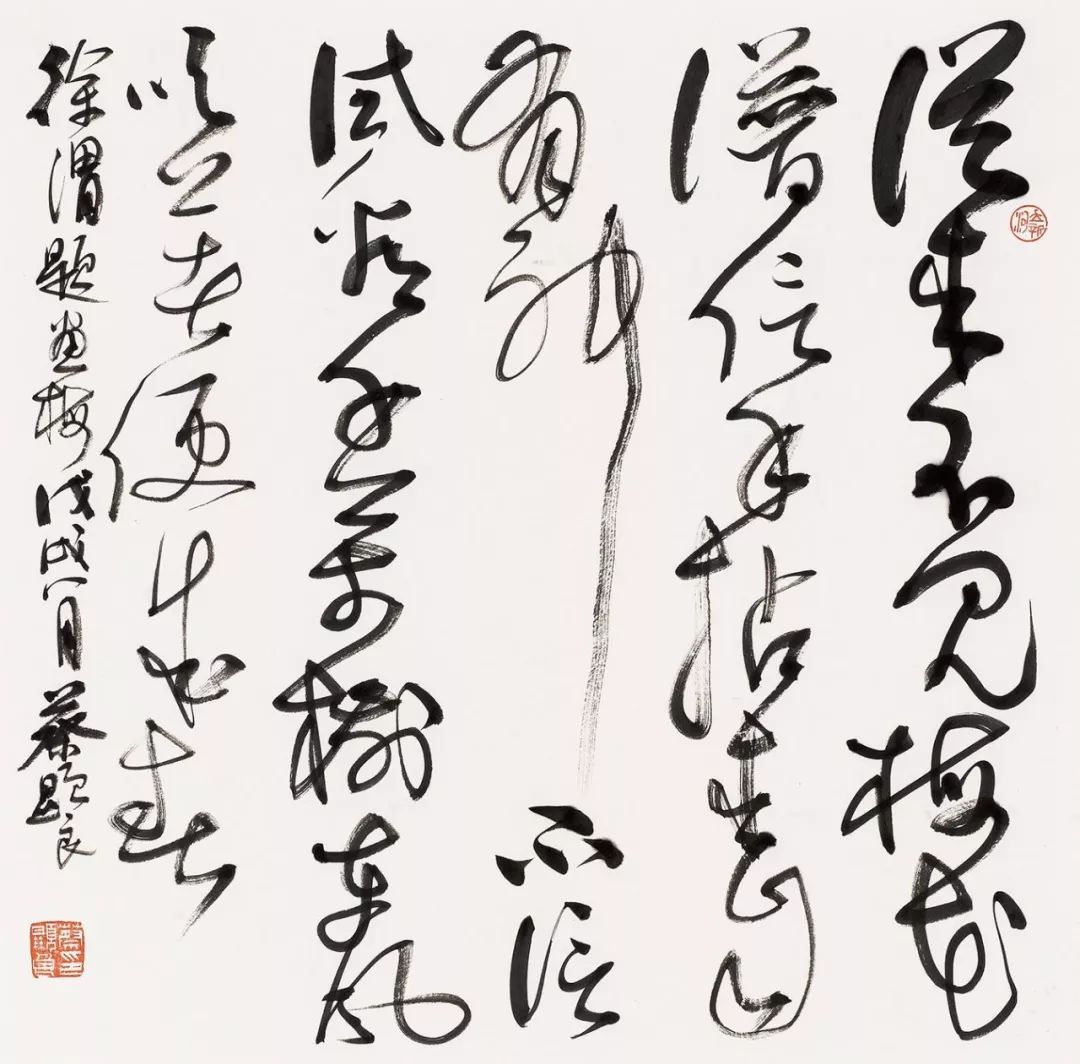 從来不見梅花
譜信手拈来自
有神不信
試看千万樹東風
吹着便成春
徐渭題畫梅戊戌八月蔡顯良
蔡顯良印